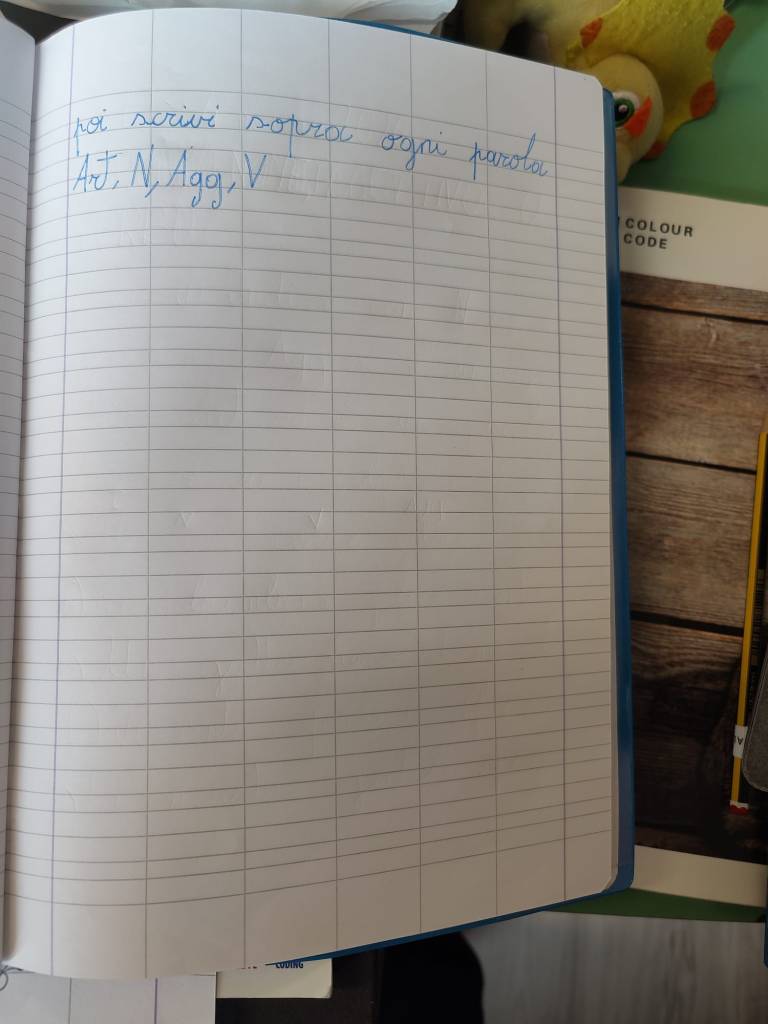 poi scrivi sopra ogni parola
Art, N, Agg, V
COLOUR
CODE
CODING